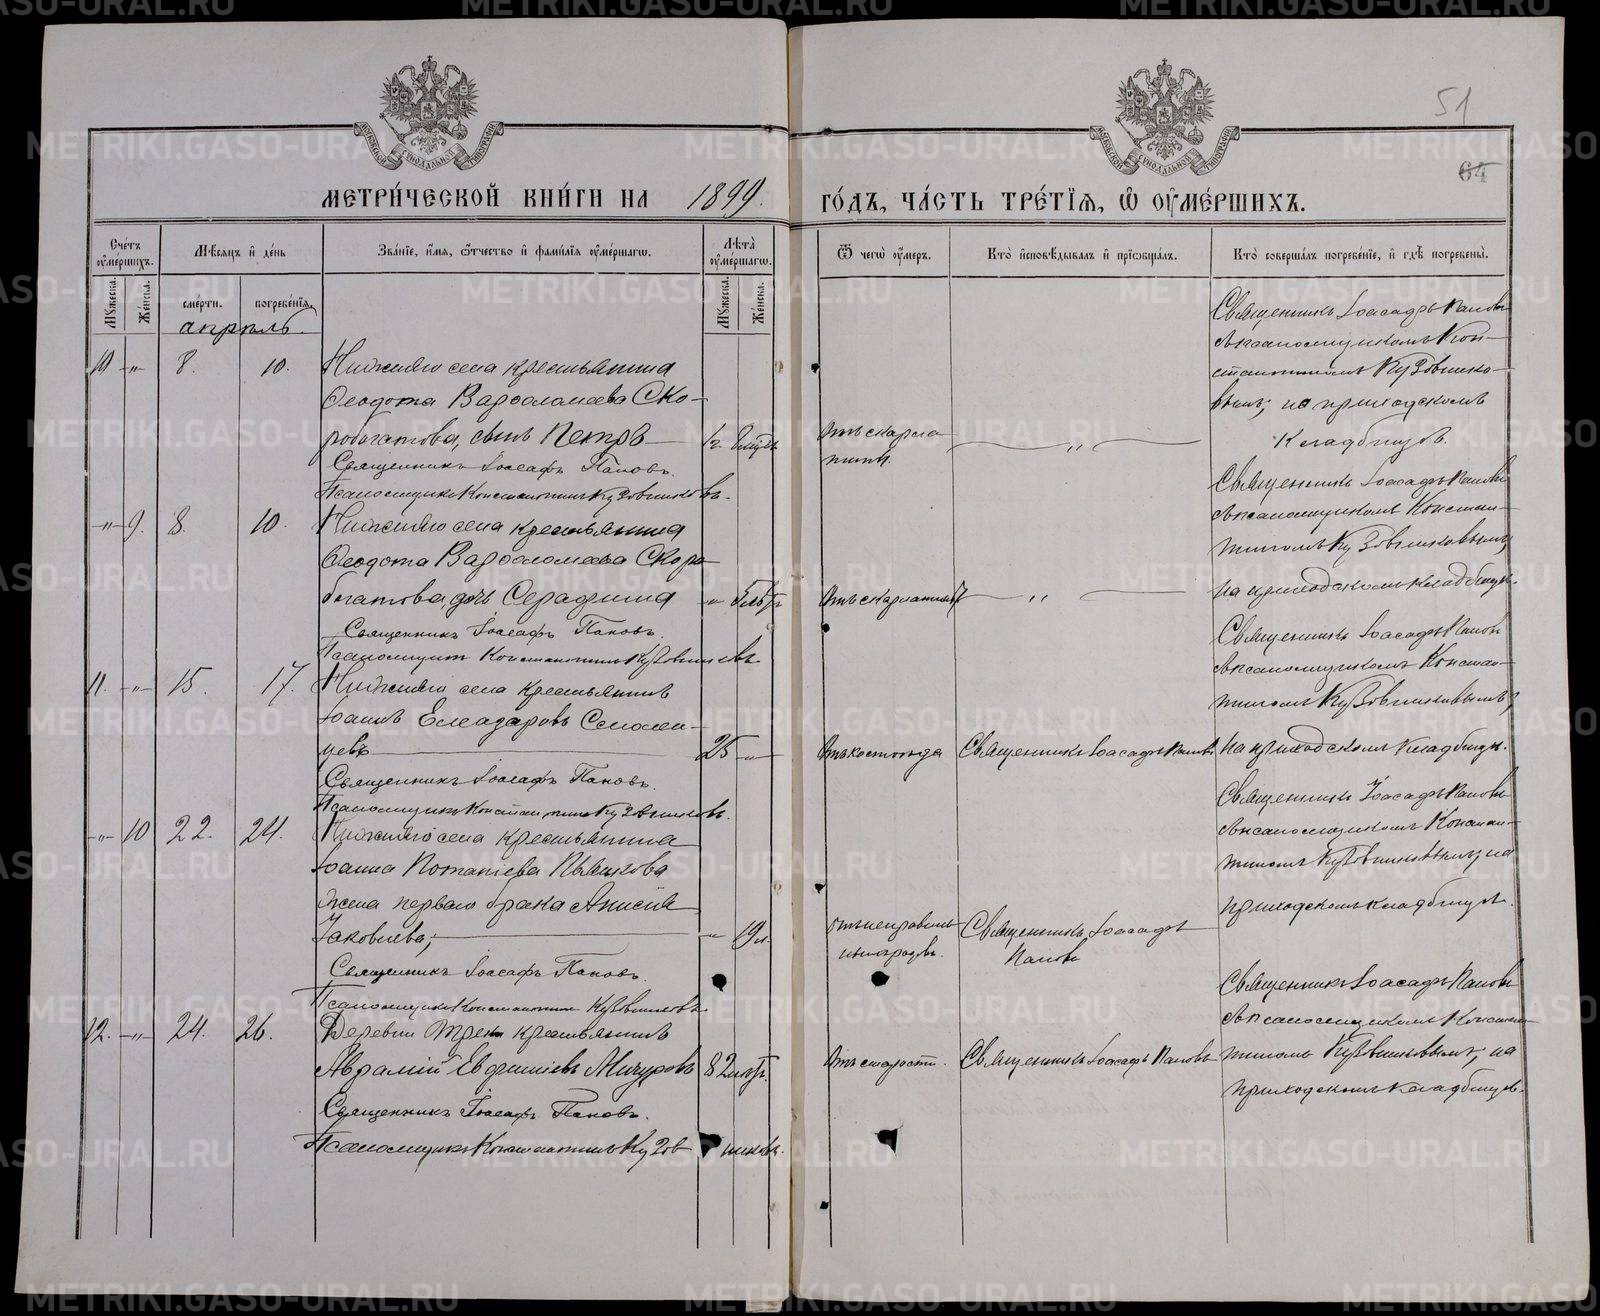 51
64
МЕТРИЧЕСКОЙ КНИГИ НА 1899 ГОДЪ, ЧАСТЬ ТРЕТІЯ, Ѿ ОУМЕРШИХЪ.
Счетъ оумершихъ.
Мѣсяцъ и день
Званіе, имя, отчество и фамилія оумершагѡ.
Лѣта оумершагѡ.
Ѿ чегѡ оумеръ.
Кто исповѣдывалъ и прїобщалъ.
Кто совершалъ погребеніе, и гдѣ погребены.
Мужеска.
Женска.
смерти.
погребенія.
Мужеска.
Женска.
апрѣль
10 -"- 8. 10.
Нижняго села крестьянина
Ѳеодота Варѳоломеева Ско-
робогатова, сынъ Петръ
Священникъ Іоасафъ Пановъ.
Псаломщикъ Константинъ Кузовниковъ.
Отъ скарла
тины.
"
Священникъ Іоасафъ Пановъ
съ псаломщикомъ Кон-
стантиномъ Кузовнико-
вымъ; на приходскомъ
кладбищѣ.
-"- 9. 8. 10.
Нижняго села крестьянина
Ѳеодота Варѳоломеева Скоро
богатова, дочь Серафима
Священникъ Іоасафъ Пановъ.
Псаломщикъ Константинъ Кузовниковъ
"
Отъ скарлатины
"
Священникъ Іоасафъ Пановъ
съ псаломщикомъ Констан-
тиномъ Кузовниковымъ,
на приходскомъ кладбищѣ.
11. -"- 15. 17.
Нижняго села крестьянинъ
Іоаннъ Елеазаровъ
Священникъ Іоасафъ Пановъ.
Псаломщикъ Константинъ Кузовниковъ.
25 -"-
Священникъ Іоасафъ Пановъ
Священникъ Іоасафъ Пановъ
съ псаломщикомъ Констан-
тиномъ Кузовниковымъ;
на приходскомъ кладбищѣ.
-"- 10 22. 24.
Нижняго села крестьянина
Іоанна Потапіева
жена перваго брака Анисія
Яковлева;
Священникъ Іоасафъ Пановъ.
Псаломщикъ Константинъ Кузовниковъ
" 19 л.
Отъ неправиль
ныхъ родовъ.
Священникъ Іоасафъ
Пановъ
Священникъ Іоасафъ Пановъ
съ псаломщикомъ Констан-
тиномъ Кузовниковымъ; на
приходскомъ кладбищѣ.
12. -"- 24. 26.
Деревни Треки крестьянинъ
Авраамій Евфиміевъ Мичуровъ
Священникъ Іоасафъ Пановъ.
Псаломщикъ Константинъ Кузовниковъ.
82
Отъ старости.
Священникъ Іоасафъ Пановъ
Священникъ Іоасафъ Пановъ
съ псаломщикомъ Констан-
тиномъ Кузовниковымъ; на
приходскомъ кладбищѣ.
METRIKI.GASO-URAL.RU